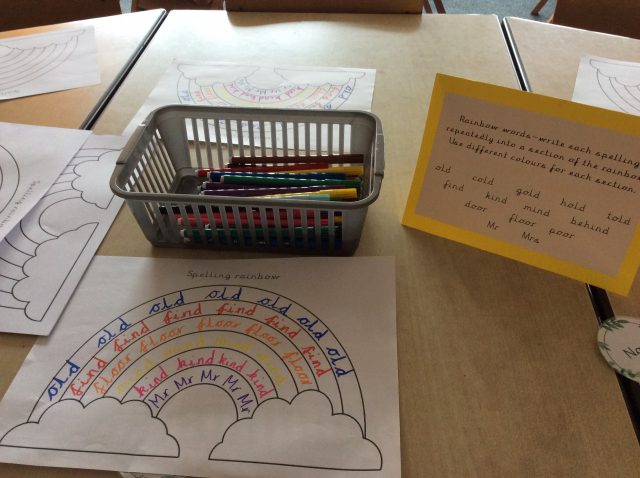 Rainbow words-write each spelling
repeatedly into a section of the rainbow.
Use different colours for each section.
old cold gold hold told
find kind mind behind
door floor poor
Mr Mrs
Spelling rainbow
old old old old old old old old
find find find find find find find
floor floor floor floor floor floor
mind mind mind mind
kind kind kind kind
Mr Mr Mr Mr Mr
kind kind kind
Mr Mr Mr
Spelling rainbow